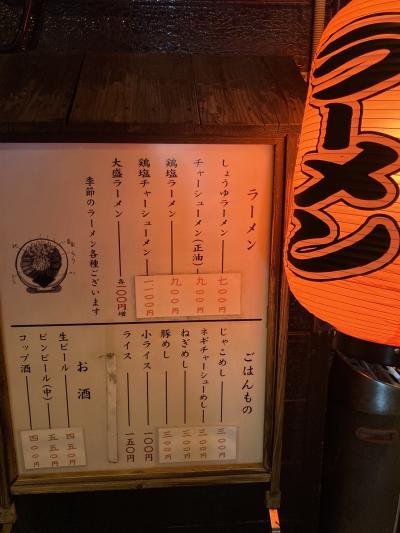 ラーメン
ラーメン
しょうゆラーメン 七〇〇円
チャーシューメン(正油) 九〇〇円
鶏塩ラーメン 九〇〇円
鶏塩チャーシューメン 一一〇〇円
大盛ラーメン 各一〇〇円増
季節のラーメン各種ございます
ごはんもの
じゃこめし 三〇〇円
ネギチャーシューめし 三〇〇円
ねぎめし 三〇〇円
豚めし 三〇〇円
小ライス 一〇〇円
ライス 一五〇円
お酒
生ビール 四五〇円
ビンビール(中) 五五〇円
コップ酒 四〇〇円